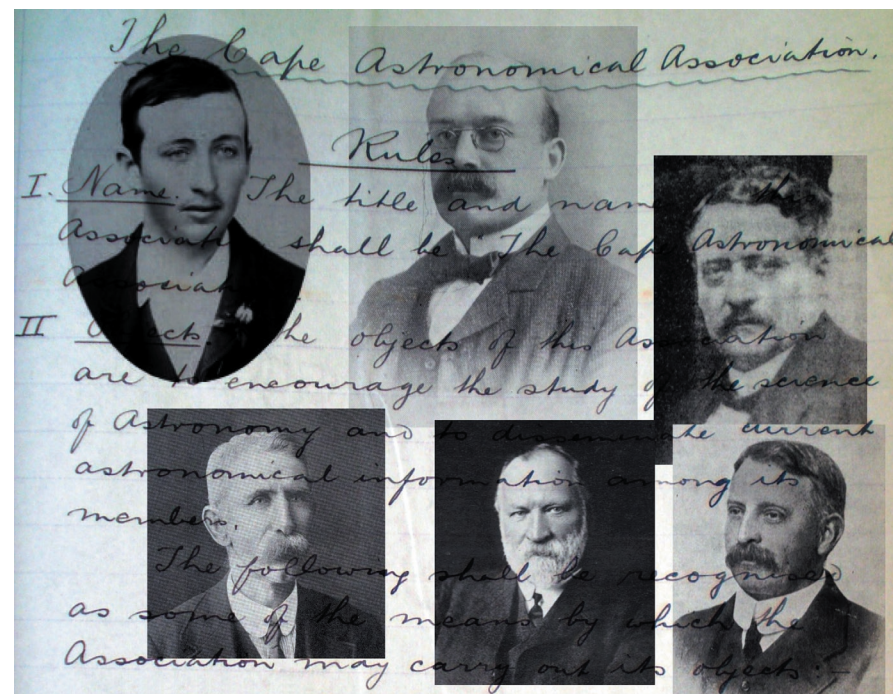 The Cape Astronomical Association.
Rules
I. Name. The title and name of this
Association shall be "The Cape Astronomical
Association.
II Objects. The objects of this Association
are to encourage the study of the science
of Astronomy and to disseminate current
astronomical information among its
members.
The following shall be recognised
as some of the means by which the
Association may carry out its objects:-